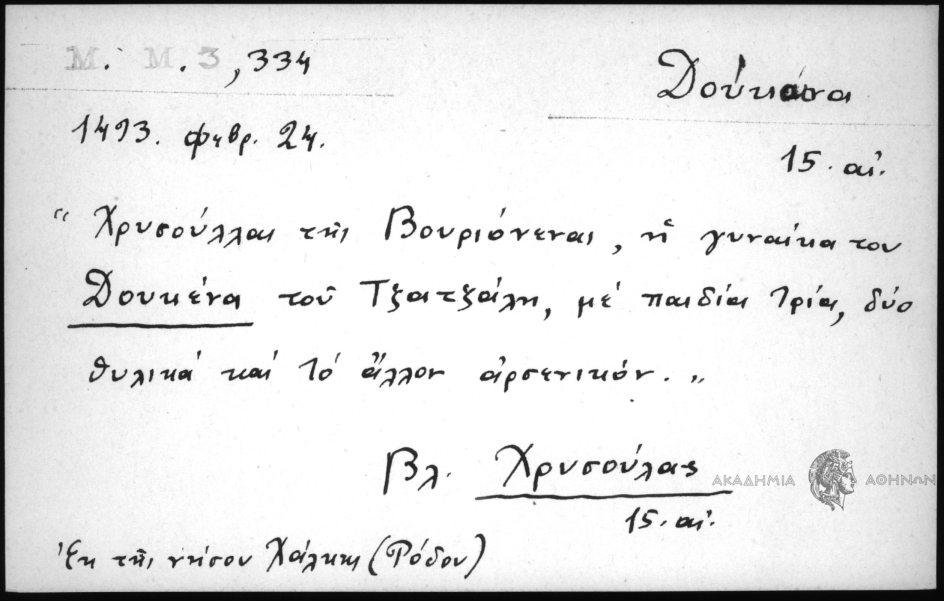 Μ. Μ. 3, 334
Δούκαινα
1493. φεβρ. 24.
15. αἰ.
“ Χρυσούλλας τῆς Βουριόνενας, ἡ γυναίκα του
Δουκένα τοῦ Τζατζάλη, μέ παιδία τρία, δύο
θυλικά καί τό ἄλλον ἀρσενικόν. „
Βλ. Χρυσούλας
15. αἰ.
Ἐκ τῆς νήσου Χάλκης (Ρόδου)
ΑΚΑΔΗΜΙΑ ΑΘΗΝΩΝ